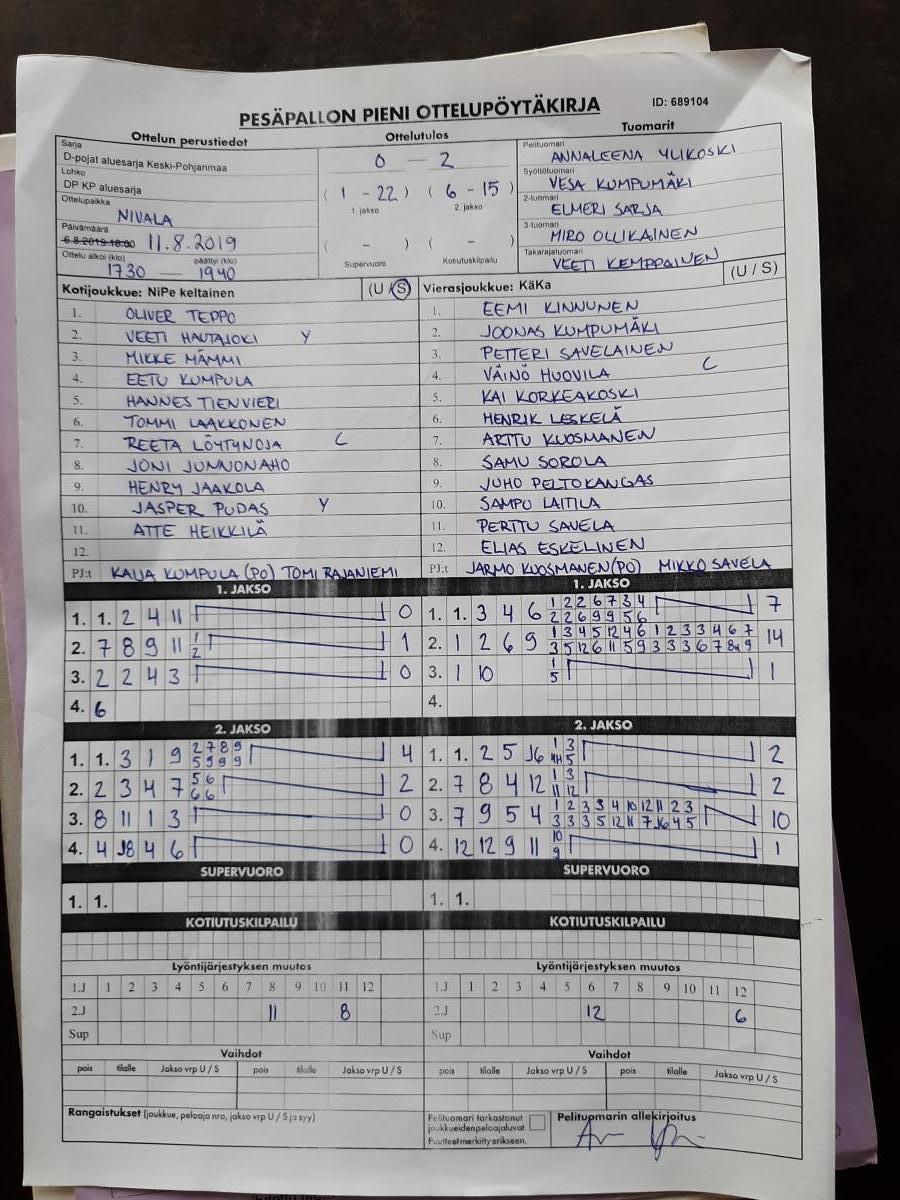 PESÄPALLON PIENI OTTELUPÖYTÄKIRJA ID: 689104
Ottelun perustiedot Ottelutulos Tuomarit
Sarja
D-pojat aluesarja Keski-Pohjanmaa
Lohko
DP KP aluesarja
Ottelupaikka
NIVALA
Päivämäärä
6.8.2019 18:00 11.8.2019
Ottelu alkoi (klo) päättyi (klo)
1730 — 1940
0 — 2
( 1 - 22 ) ( 6 - 15 )
1. jakso 2. jakso
( - ) ( - )
Supervuoro Kotiutuskilpailu
Pelituomari
ANNALEENA YLIKOSKI
Syöttötuomari
VESA KUMPUMÄKI
2-tuomari
ELMERI SARJA
3-tuomari
MIRO OLLIKAINEN
Takarajatuomari
VEETI KEMPPAINEN
Kotijoukkue: NiPe keltainen (U / S)
1. OLIVER TEPPO
2. VEETI HAUTAJOKI Y
3. MIKKE MÄMMI
4. EETU KUMPULA
5. HANNES TIENVIERI
6. TOMMI LAAKKONEN
7. REETA LÖYTYNOJA C
8. JONI JUNNONAHO
9. HENRY JAAKOLA
10. JASPER PUDAS Y
11. ATTE HEIKKILÄ
12.
PJ:t KAIJA KUMPULA (PO) TOMI RAJANIEMI
Vierasjoukkue: KäKa (U / S)
1. EEMI KINNUNEN
2. JOONAS KUMPUMÄKI
3. PETTERI SAVELAINEN
4. VÄINÖ HUOVILA C
5. KAI KORKEAKOSKI
6. HENRIK LESKELÄ
7. ARTTU KUOSMANEN
8. SAMU SOROLA
9. JUHO PELTOKANGAS
10. SAMPO LAITILA
11. PERTTU SAVELA
12. ELIAS ESKELINEN
PJ:t JARMO KUOSMANEN (PO) MIKKO SAVELA
1. JAKSO
1. 1. 2 4 11 0
2. 7 8 9 11 1 2 1
3. 2 2 4 3 0
4. 6
1. JAKSO
1. 1. 3 4 6 1 2 2 6 7 3 4 7
2 2 6 9 9 5 6
2. 1 2 6 9 1 3 4 5 12 4 6 1 2 3 3 4 6 7 14
3 5 12 6 11 5 9 3 3 3 6 7 8 9
3. 1 10 1 5 1
4.
2. JAKSO
1. 1. 3 1 9 2 7 8 9 4
5 9 9 9
2. 2 3 4 7 5 6 2
6 6
3. 8 11 1 3 0
4. 4 8 4 6 0
2. JAKSO
1. 1. 2 5 6 1 3 2
4 5
2. 7 8 4 12 1 3 2
11 12
3. 7 9 5 4 1 2 3 3 4 10 12 11 2 3 10
3 3 3 5 12 11 7 6 4 5
4. 12 12 9 11 10 9 1
SUPERVUORO SUPERVUORO
1. 1. 1. 1.
KOTIUTUSKILPAILU KOTIUTUSKILPAILU
Lyöntijärjestyksen muutos Lyöntijärjestyksen muutos
1.J 1 2 3 4 5 6 7 8 9 10 11 12 1.J 1 2 3 4 5 6 7 8 9 10 11 12
2.J 11 8 2.J 12 6
Sup Sup
Vaihdot Vaihdot
pois tilalle Jakso vrp U / S pois tilalle Jakso vrp U / S pois tilalle Jakso vrp U / S pois tilalle Jakso vrp U / S
Rangaistukset (joukkue, pelaaja nro, jakso vrp U / S ja syy)
Pelituomari tarkastanut
joukkueiden pelaajaluvat.
Puutteet merkitty erikseen.
Pelituomarin allekirjoitus